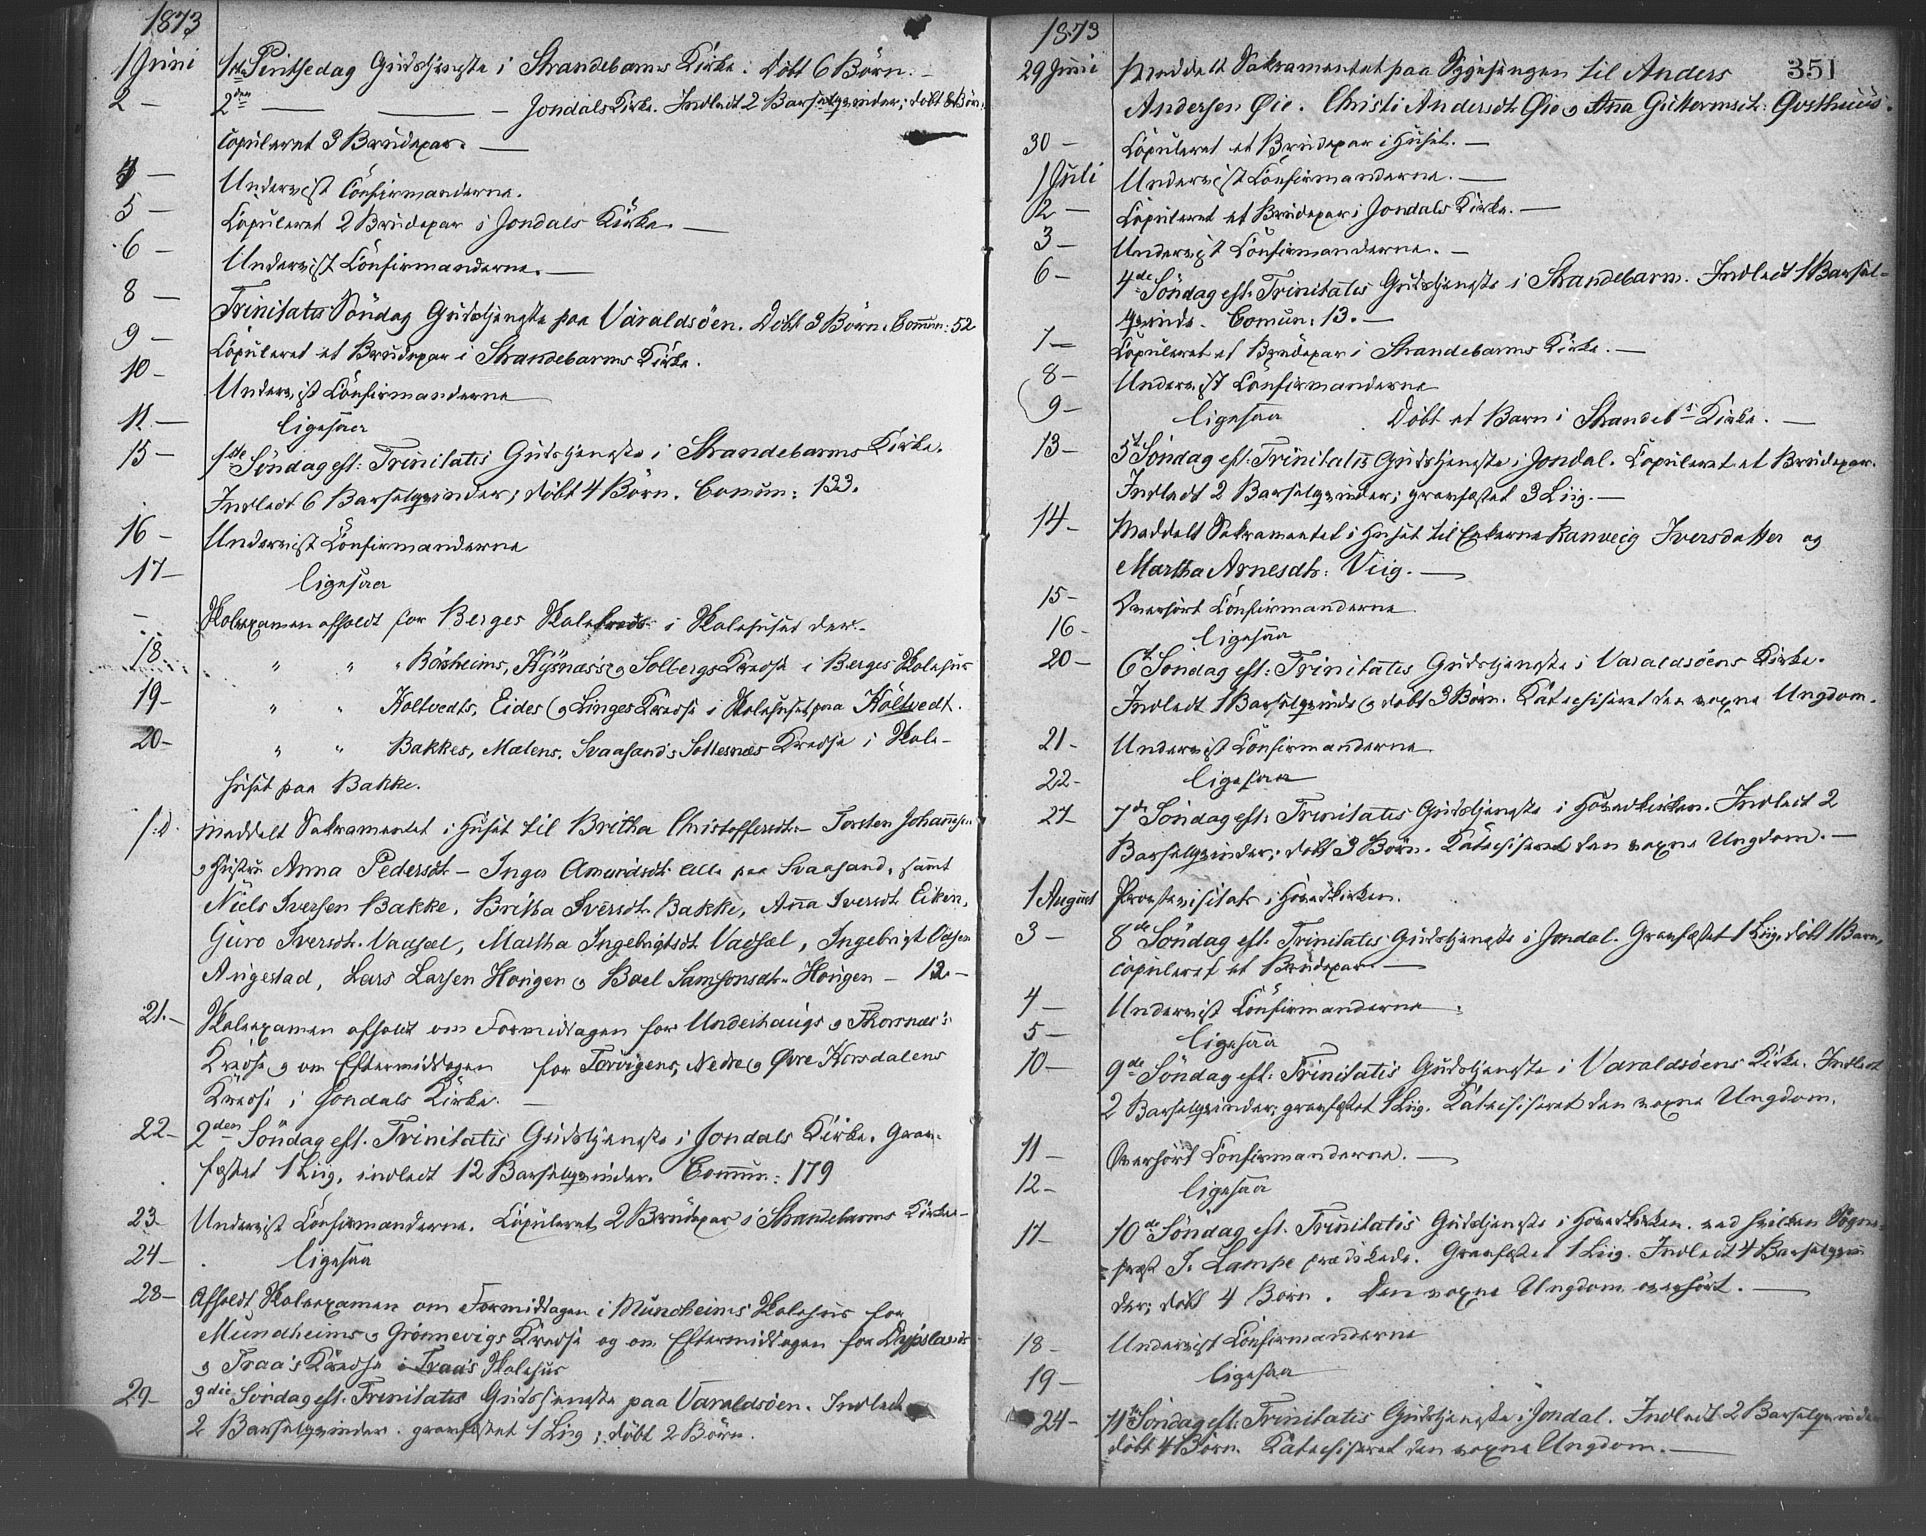 1873
1 Juni 1ste Pintsedag Gudstjeneste i Strandebarms Kirke. Döbt 6 Börn. –
2 – 2den — — – Jondals Kirke. Indledt 2 Barselqvinder; döbt Börn;
copuleret 3 Brudepar. —
4 – Underviist Confirmanderne.
5 – Copuleret 2 Brudepar i Jondals Kirke. —
6 – Underviist Confirmanderne. —
8 – Trinitatis Söndag Gudstjeneste paa Varaldsöen. Döbt 3 Börn. Comun: 52
9 – Copuleret et Brudepar i Strandebarms Kirke.
10 – Underviist Confirmanderne —
11. – ligesaa
15 – 1ste Söndag eft: Trinitatis Gudstjeneste i Strandebarms Kirke.
Indledt 6 Barselqvinder; döbt 4 Börn. Comun: 133.
16 – Underviist Confirmanderne
17 – ligesaa
– Skoleexamen afholdt for Berges Skolekreds i Skolehuset der. –
18 " " " Börsheims, Kysnæs's og Solbergs Kredse i Berges Skolehus
19 – " " Holtvedts, Eides og Linges Kredse i Skolehuset paa Holtvedt.
20 – " " Bakkes, Mælens, Svaasand's Sollesnæs Kredse i Skole-
huset paa Bakke.
s. d. Meddelt Sakramentet i Huset til Britha Christoffersdt: – Torsten Johannesen
og Hustru Anna Pedersdt – Inger Amundsdt: alle paa Svaasand, samt
Niels Iversen Bakke, Britha Iversdt. Bakke, Anna Iversdt. Eiken,
Guro Iversdt. Vadsel, Martha Ingebrigtsdt Vadsel, Ingebrigt Odsen
Augestad, Lars Larsen Hougen og Boel Samsonsdt. Hougen – 12. –
21. – Skoleexamen afholdt om Formiddagen for Underhaugs og Thorsnæs's
Kredse og om Eftermiddagen for Torvigens, Nedre og Øvre Krosdalens
Kredse i Jondals Kirke. —
22 – 2den Söndag eft. Trinitatis Gudstjeneste i Jondals Kirke. Grav-
fæstet 1 Liig, indledt 12 Barselqvinder. Comun: 179
23 – Underviist Confirmanderne. Copuleret 2 Brudepar i Strandebarms Kirke –
24 – ligesaa
28 – Afholdt Skoleexamen om Formiddagen i Mundheims Skolehus for
Mundheims og Grönnevigs Kredse og om Eftermiddagen for
og Traa's Kredse i Traa's Skolehus
29 – 3die Söndag eft. Trinitatis Gudstjeneste paa Varaldsöen. Indledt
2 Barselqvinder. gravfæstet 1 Liig; döbt 2 Börn.
1873
351
29 Juni Meddelt Sakramentet paa Sygesengen til Anders
Andersen Øie. Christi Andersdt. Øie og Anna Guttormsdt. Østhuus.
30 – Copuleret et Brudepar i Huset. —
1 Juli Underviist Confirmanderne. —
2 – Copuleret et Brudepar i Jondals Kirke. —
3 – Underviist Confirmanderne. –
6 – 4de Söndag eft: Trinitatis Gudstjeneste i Strandebarm. Indledt 1 Barsel-
qvinde. Comun: 13. –
7 – Copuleret et Brudepar i Strandebarms Kirke. —
8 – Underviist Confirmanderne
9 – ligesaa Döbt et Barn i Strandeb.s Kirke. —
13 – 5te Söndag eft: Trinitatis Gudstjeneste i Jondal. Copuleret et Brudepar.
Indledt 2 Barselqvinder; gravfæstet 3 Liig. —
14 – Meddelt Sakramentet i Huset til Enkerne Ranveig Iversdatter og
Martha Arnesdt: Viig. —
15 – Overhört Confirmanderne
16 – ligesaa
20 – 6te Söndag eft: Trinitatis Gudstjeneste i Varaldsöens Kirke.
Indledt 1 Barselqvinde og döbt 3 Börn. Katechiseret den voxne Ungdom.
21 – Underviist Confirmanderne
22 – ligesaa
27 – 7de Söndag eft: Trinitatis Gudstjeneste i Hovedkirken. Indledt 2
Barselqvinder; döbt 3 Börn. Katechiseret den voxne Ungdom. —
1 August Provstevisitats i Hovedkirken.
3 – 8de Söndag eft. Trinitatis Gudstjeneste i Jondal. Gravfæstet 1 Liig, döbt 1 Barn,
copuleret et Brudepar. —
4 – Underviist Confirmanderne
5 – ligesaa
10 – 9de Söndag eft: Trinitatis Gudstjeneste i Varaldsöens Kirke. Indledt
2 Barselqvinder; gravfæstet 1 Liig. Katechiseret den voxne Ungdom.
11 – Overhört Confirmanderne. —
12 – ligesaa
17 – 10de Söndag eft. Trinitatis Gudstjeneste i Hovedkirken, ved hvilken Sogne-
præst J. Lampe prædikede. Gravfæstet 1 Liig. Indledt 4 Barselqvin-
der; döbt 4 Börn. Den voxne Ungdom overhört. —
18 – Underviist Confirmanderne
19 – ligesaa
24 – 11te Söndag eft: Trinitatis Gudstjeneste i Jondal. Indledt 2 Barselqvinder
döbt 4 Börn. Katechiseret den voxne Ungdom. —